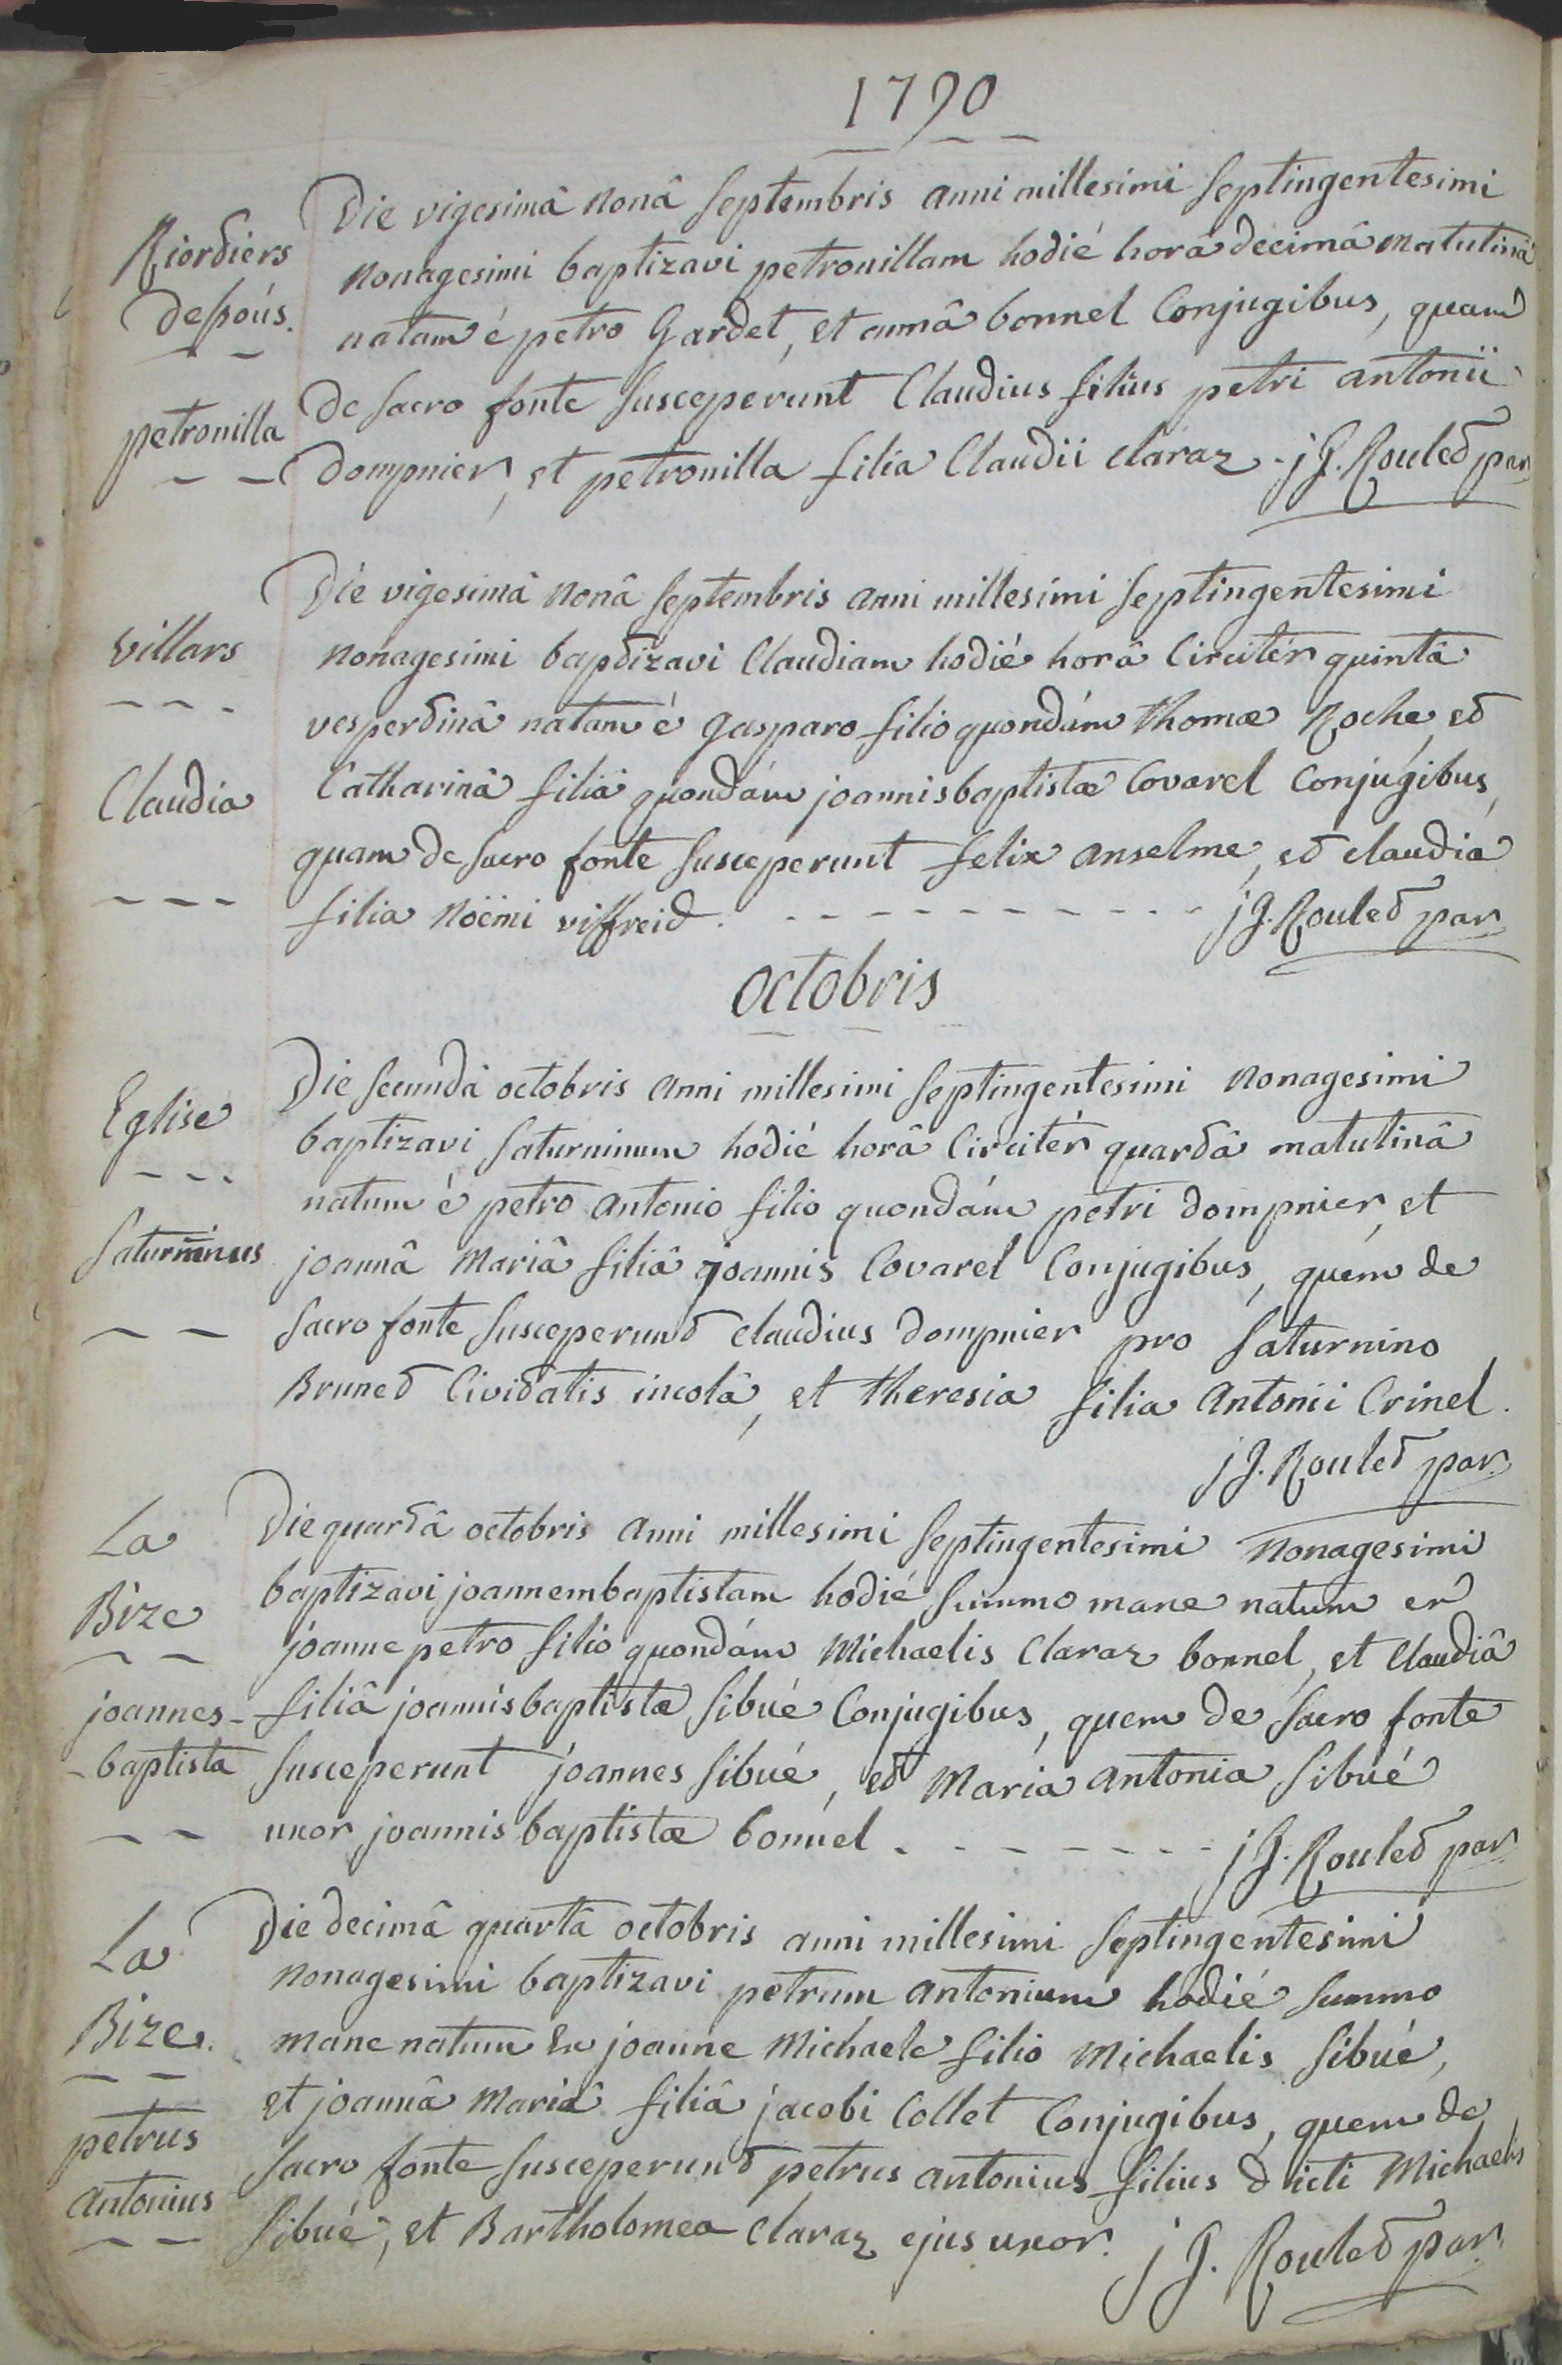 1790
Riordiers
dessous.
petronilla
Die vigesimâ nonâ Septembris anni millesimi Septingentesimi
nonagesimi baptizavi petronillam hodié horâ decimâ matutinâ
natam é petro Gardet, et annâ bonnel Conjugibus, quam
de sacro fonte susceperunt Claudius filius petri antonii
dompnier, et petronilla filia Claudii claraz - j J. Roulet par
Villars
Claudia
Die vigesimâ nonâ Septembris anni millesimi Septingentesimi
nonagesimi baptizavi Claudiam hodié horâ Circitér quintâ
vespertinâ natam é gasparo filio quondám thomæ Roche et
Catharinâ filiâ quondám joannisbaptistæ Covarel Conjúgibus,
quam de sacro fonte susceperunt felix anselme, et claudia
filia Noëmi viffreid. - - - - - - - - - - j J. Roulet par
octobris
Eglise
Saturninus
Die secundâ octobris anni millesimi Septingentesimi nonagesimi
baptizavi Saturninum hodié horâ Circitér quartâ matutinâ
natum é petro antonio filio quondám petri dompnier, et
joannâ Mariâ filiâ joannis Covarel Conjugibus, quem de
sacro fonte susceperunt claudius dompnier pro Saturnino
Brunet Cividatis incolâ, et theresia filia antonii Crinel.
j J. Roulet par.
La
Bize
joannes-
-baptista
Die quartâ octobris anni millesimi Septingentesimi nonagesimi
baptizavi joannembaptistam hodié summo mane natum ex
joanne petro filio quondám Michaelis Claraz bonnel, et Claudiâ
filiâ joannisbaptistæ Sibué Conjugibus, quem de sacro fonte
susceperunt joannes Sibué, et Maria antonia Sibué
uxor joannis baptistæ bonnel - - - - - - - - j J. Roulet par
La
Bize.
petrus
antonius
Die decimâ quartâ octobris anni millesimi Septingentesimi
nonagesimi baptizavi petrum antonium hodié summo
mane natum Ex joanne Michaele filio Michaelis Sibué,
et joannâ Mariâ filiâ jacobi Collet Conjugibus, quem de
sacro fonte susceperunt petrus antonius filius dicti Michaelis
Sibué, et Bartholomea Claraz ejus uxor. j J. Roulet par.